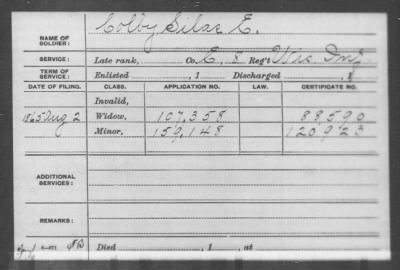 NAME OF SOLDIER: Colby Silas E.
SERVICE: Late rank, Co. E, 8 Reg't Wis. Inf.
TERM OF SERVICE: Enlisted , 1 Discharged , 1
DATE OF FILING. CLASS. APPLICATION NO. LAW. CERTIFICATE NO.
Invalid,
1865 Aug 2 Widow, 107,358 88,590
Minor, 159,148 120,923
ADDITIONAL SERVICES:
REMARKS:
Died , 1 , at